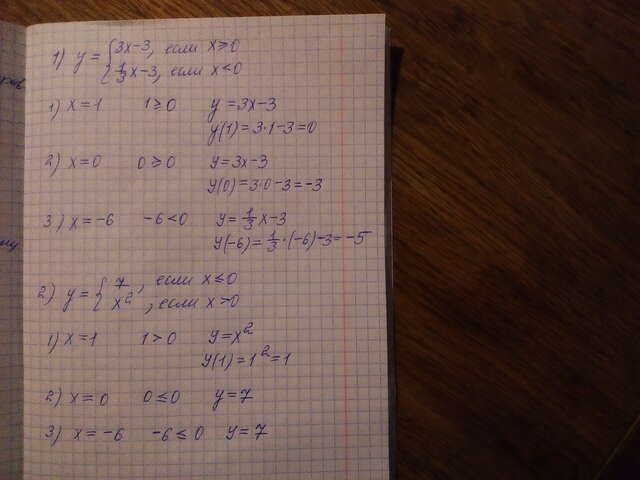 1) y = {3x-3, если x≥0
{1/3x-3, если x<0
1) x=1 1≥0 y=3x-3
y(1)=3·1-3=0
2) x=0 0≥0 y=3x-3
y(0)=3·0-3=-3
3.) x=-6 -6<0 y=1/3x-3
y(-6)=1/3·(-6)-3=-5
2) y = {7, если x≤0
{x², если x>0
1) x=1 1>0 y=x²
y(1)=1²=1
2) x=0 0≤0 y=7
3) x=-6 -6≤0 y=7